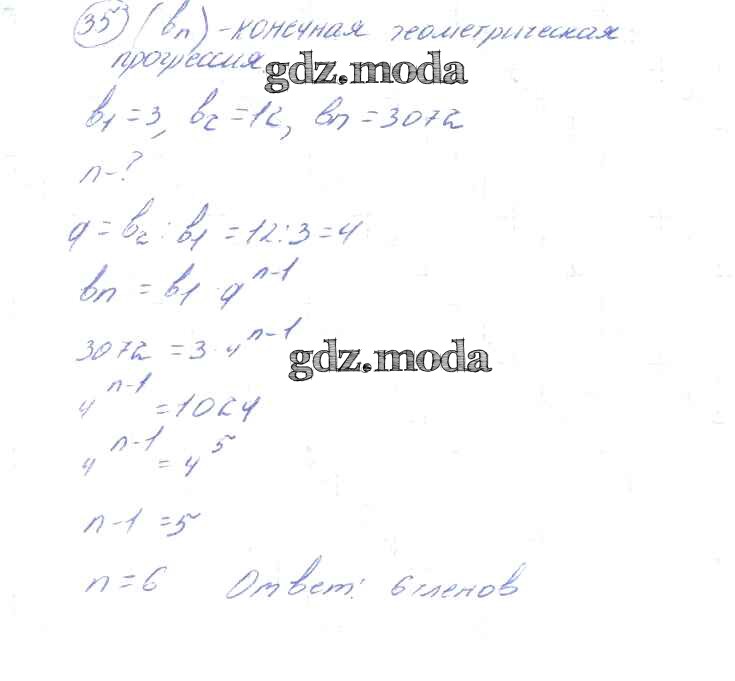 35 (bn) - конечная геометрическая
прогрессия.
gdz.moda
b1 = 3, b2 = 12, bn = 3072
n - ?
q = b2 : b1 = 12 : 3 = 4
bn = b1 · q^(n-1)
3072 = 3 · 4^(n-1)
gdz.moda
4^(n-1) = 1024
4^(n-1) = 4^5
n - 1 = 5
n = 6 Ответ: 6 членов